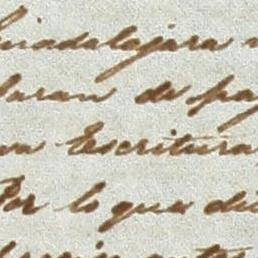 Guadalajara
laran de pa
va Escritura
Por lo que di